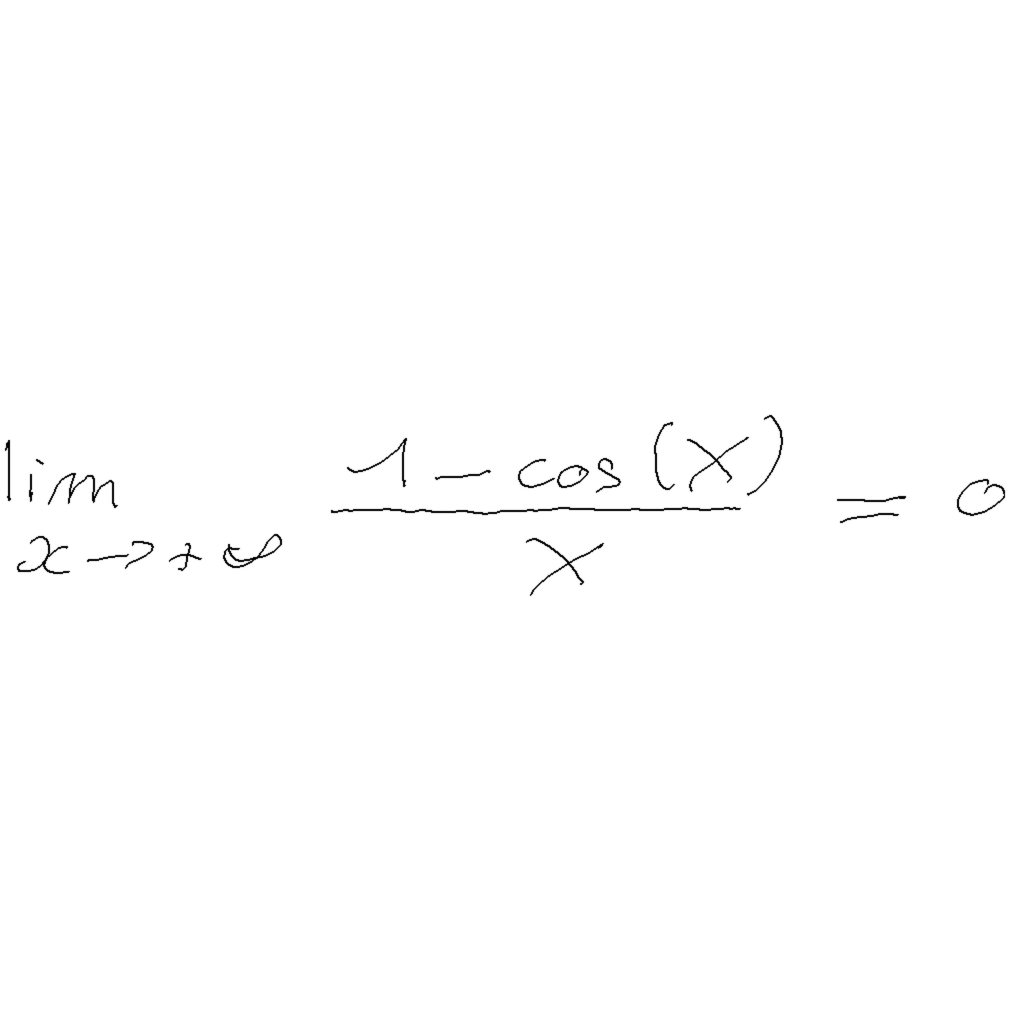 lim x→+∞ (1-cos(x))/x = 0